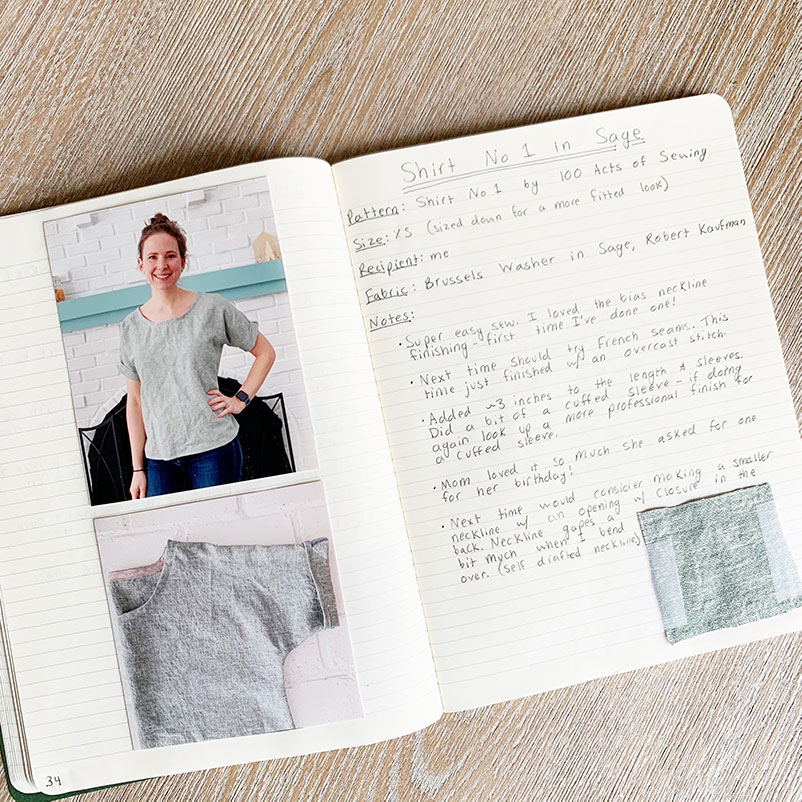 Shirt No 1 in Sage
Pattern: Shirt No 1 by 100 Acts of Sewing
Size: XS (sized down for a more fitted look)
Recipient: me
Fabric: Brussels Washer in Sage, Robert Kaufman
Notes:
• Super easy sew. I loved the bias neckline
finishing - first time I've done one!
• Next time should try French seams. This
time just finished w/ an overcast stitch.
• Added ~3 inches to the length & sleeves.
Did a bit of a cuffed sleeve - if doing
again look up a more professional finish for
a cuffed sleeve.
• Mom loved it so much she asked for one
for her birthday!
• Next time would consider making a smaller
neckline w/ an opening w/ closure in the
back. Neckline gapes a
bit much when I bend
over. (self drafted neckline)
34